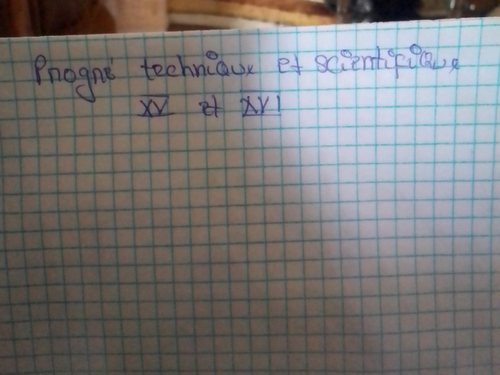 Progré technique et scientifique
XV et XVI